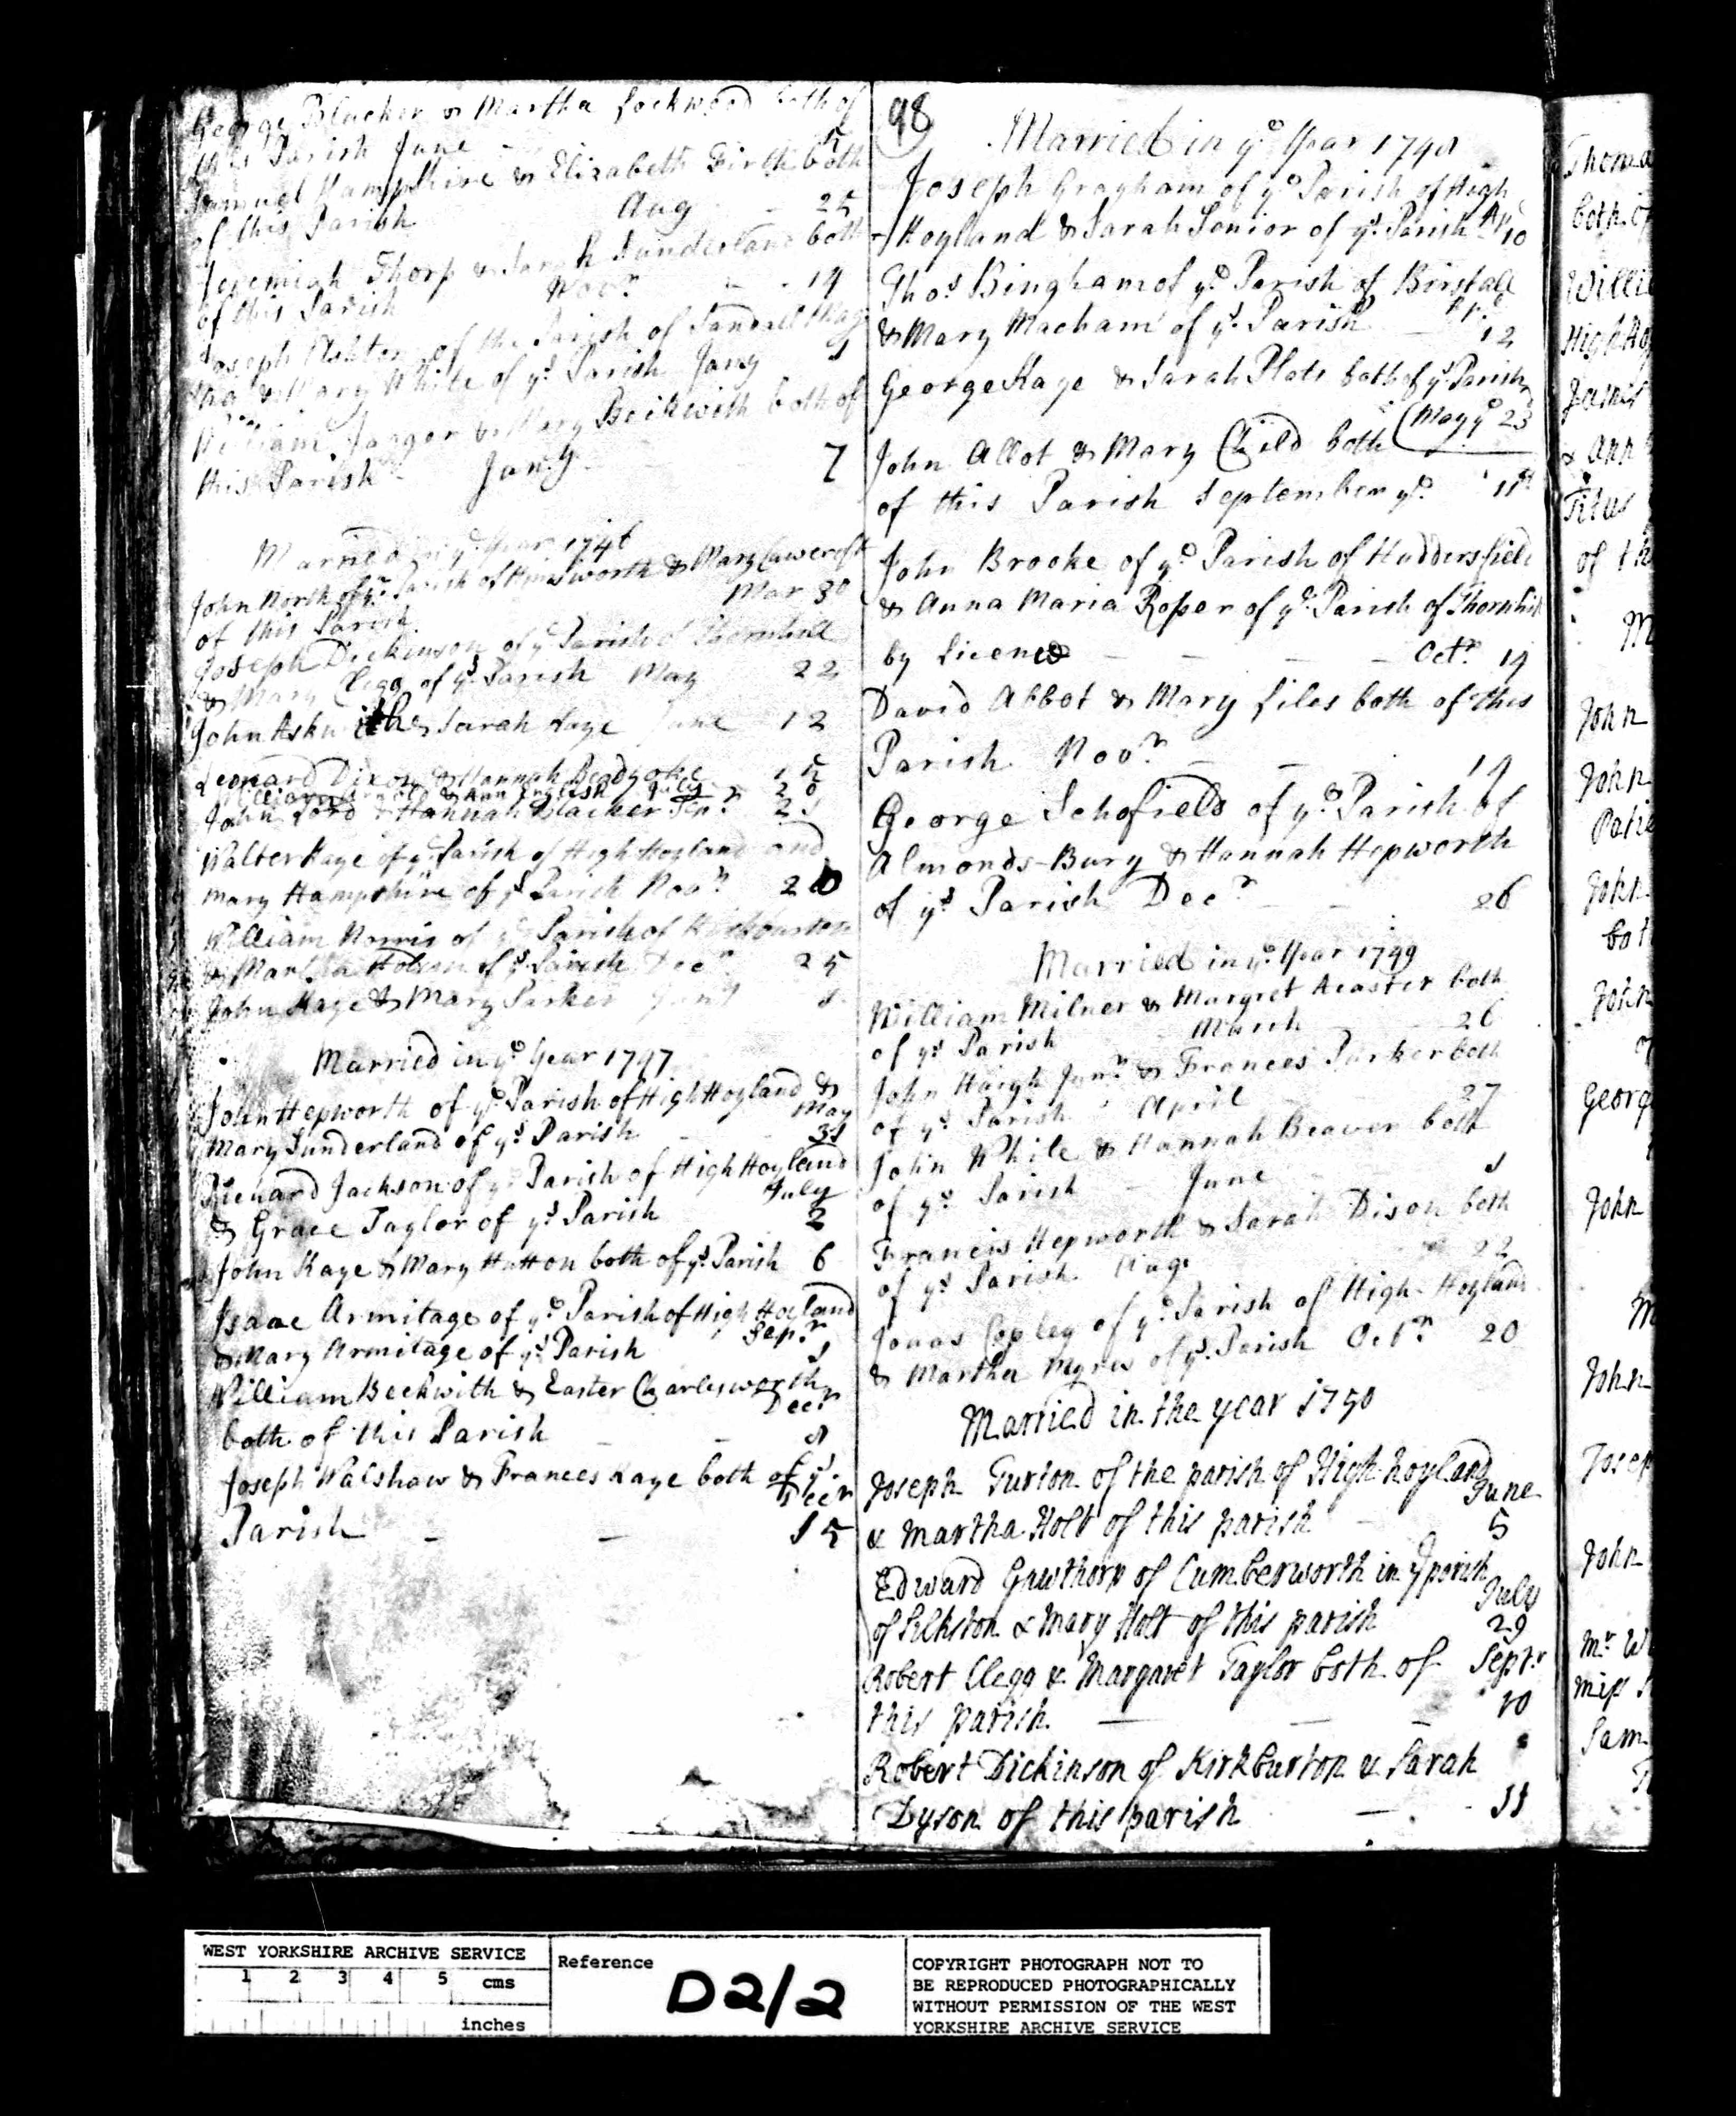 George Blacker & Martha Lockwood both of
this Parish June 5
Samuel Hampshire & Elizabeth Firth both
of this Parish Aug 25
Jeremiah Thorp & Sarah Sunderland both
of this Parish Novr 19
Joseph of the Parish of Sandall Mag
& Mary White of ys Parish Jany 1
William Jagger & Mary Beckwith both of
this Parish Jany 7
Married in ye Year 1746
John North of ye Parish of & Mary Cawcroft
of this Parish Mar 30
Joseph Dickinson of ye Parish of Thornhill
& Mary Clegg of ys Parish May 22
John Askwith & Sarah Kaye June 12
Leonard Dixon & Hannah 15
William & Ann English July 20
John Lord & Hannah Blacker Sepr 21
Walter Kaye of ye Parish of High Hoyland and
Mary Hampshire of ys Parish Novr 20
William Norris of ye Parish of Kirkburton
& Martha Hobson of ys Parish Decr 25
John Kaye & Mary Parker Jany 1
Married in ye Year 1747
John Hepworth of ye Parish of High Hoyland &
Mary Sunderland of ys Parish May 31
Richard Jackson of ye Parish of High Hoyland
& Grace Taylor of ys Parish July 2
John Kaye & Mary Hutton both of ys Parish 6
Isaac Armitage of ye Parish of High Hoyland
& Mary Armitage of ys Parish Sepr 1
William Beckwith & Easter Charlesworth
both of this Parish Decr 8
Joseph Walshaw & Frances Kaye both of ys
Parish Decr 15
98
Married in ye Year 1748
Joseph Gragham of ye Parish of High
Hoyland & Sarah Senior of ys Parish Apl 10
Thos Bingham of ye Parish of Birstall
& Mary Macham of ys Parish 12
George Kaye & Sarah Plats both of ys Parish
(May ye 23
John Allot & Mary Child both
of this Parish September ye 11th
John Brooke of ye Parish of Huddersfield
& Anna Maria Roper of ye Parish of Thornhill
by Licence Octr 19
David Abbot & Mary Liles both of this
Parish Novr 19
George Schofield of ye Parish of
Almonds-Bury & Hannah Hepworth
of ys Parish Decr 26
Married in ye Year 1749
William Milner & Margret Acaster both
of ys Parish March 26
John Haigh Junr & Frances Parker both
of ys Parish April 27
John White & Hannah Beaver both
of ys Parish June 1
Francis Hepworth & Sarah Dison both
of ys Parish Aug 22
Jonas Copley of ye Parish of High-Hoyland
& Martha Myres of ys Parish Octr 20
Married in the year 1750
Joseph Turton of the parish of High-hoyland
& Martha Holt of this parish June 5
Edward Gawthorp of Cumberworth in ye parish
of Silkston & Mary Holt of this parish July 29
Robert Clegg & Margaret Taylor both of Septr
this parish 10
Robert Dickinson of Kirkburton & Sarah
Dyson of this parish 11
both of
of
John
John
John
John
Georg
John
John
Joseph
John
Mr W
Sam
WEST YORKSHIRE ARCHIVE SERVICE
1 2 3 4 5 cms
inches
Reference
D2/2
COPYRIGHT PHOTOGRAPH NOT TO
BE REPRODUCED PHOTOGRAPHICALLY
WITHOUT PERMISSION OF THE WEST
YORKSHIRE ARCHIVE SERVICE